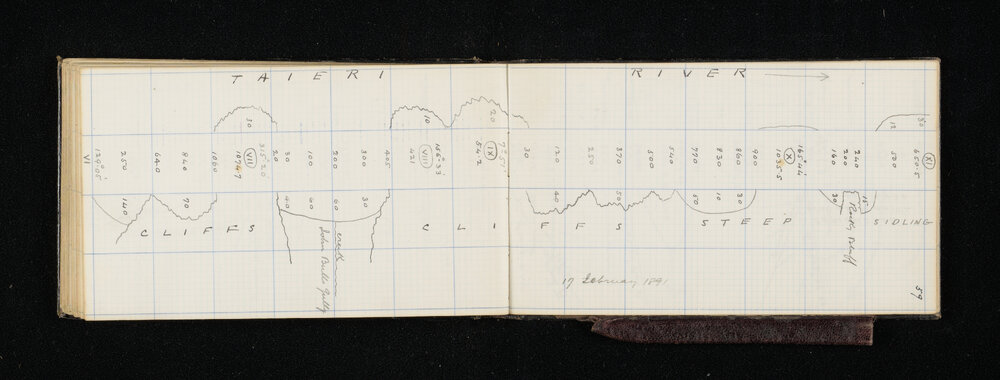 TAIERI RIVER
30 10 20 12 30
VI
129° 05'
250
640
840
1060
1079.7
VII
315° 20'
20
30
100
200
300
405
421
VIII
156° 33'
542
IX
30
120
250
370
500
540
770
830
860
900
1035.5
X
165° 44'
160
200
240
520
650.5
XI
140 70 40 60 60 30 40 50 50 10 30 30 15
CLIFFS CLIFFS STEEP SIDLING
creek
John Bulls Gully
Rocky Bluff
17 February 1891
59